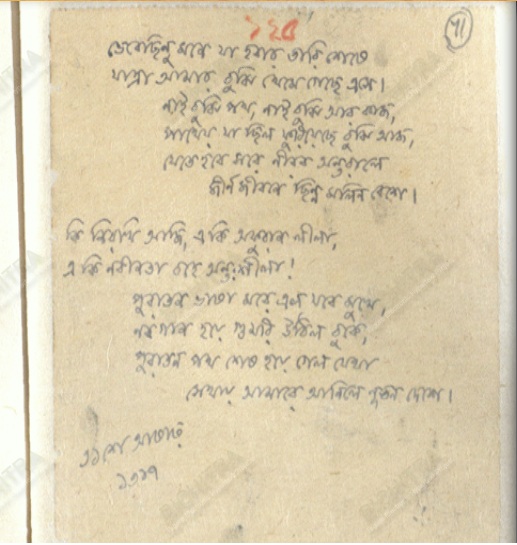 ১২৫
71
ভেবেছিনু মনে যা হবার তারি শেষে
যাত্রা আমার বুঝি থেমে গেছে এসে।
নাই বুঝি পথ, নাই বুঝি আর কাজ,
পাথেয় যা ছিল ফুরায়েছে বুঝি আজ,
যেতে হবে সরে নীরব অন্তরালে
জীর্ণ জীবনে ছিন্ন মলিন বেশে।
কি নিরখি আজি, একি অফুরান লীলা,
একি নবীনতা বহে অন্তঃশীলা!
পুরাতন ভাষা মরে এল যবে মুখে,
নব গান হয়ে গুমরি উঠিল বুকে,
পুরাতন পথ শেষ হয়ে গেল যেথা
সেথায় আমারে আনিলে নূতন দেশে।
আষাঢ়
১৩১৭